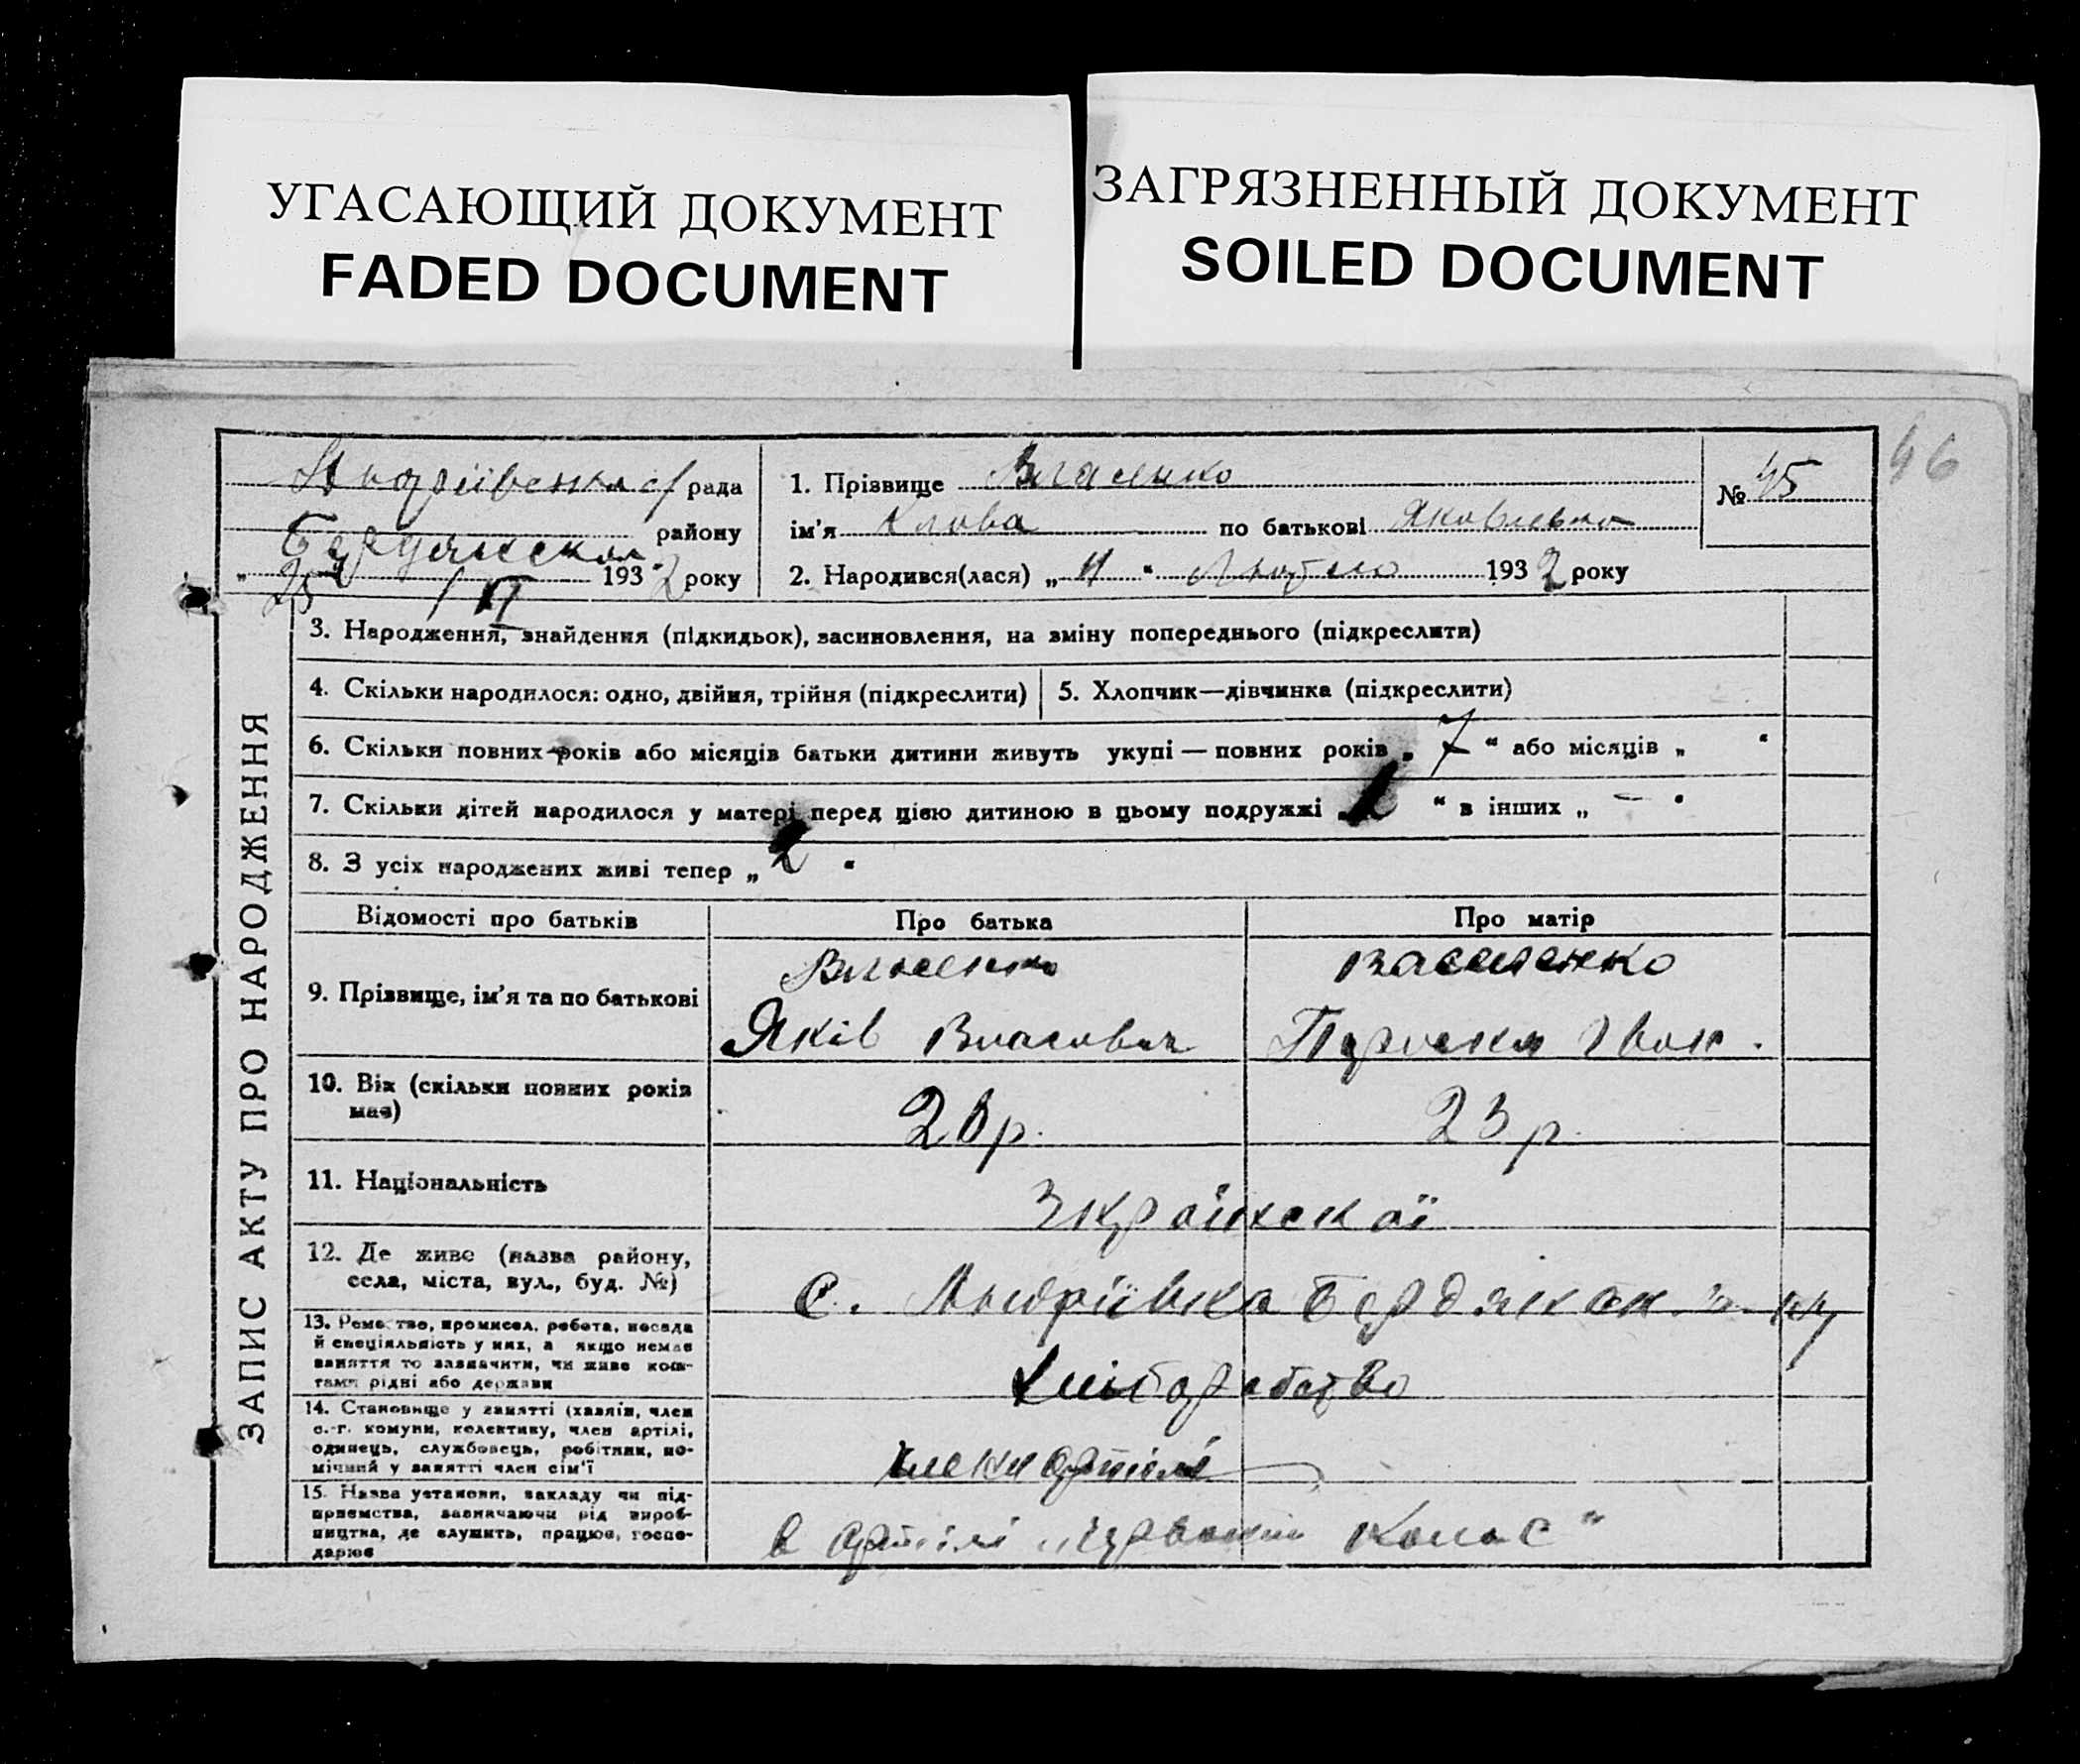 УГАСАЮЩИЙ ДОКУМЕНТ
FADED DOCUMENT
ЗАГРЯЗНЕННЫЙ ДОКУМЕНТ
SOILED DOCUMENT
46
рада
району
„ 25 / II 1932 року
1. Прізвище Власенко
ім'я Клава по батькові Яковлевна
2. Народився(лася) „ 11 “ Лютого 1932 року
№ 45
ЗАПИС АКТУ ПРО НАРОДЖЕННЯ
3. Народження, знайдення (підкидьок), засиновлення, на зміну попереднього (підкреслити)
4. Скільки народилося: одно, двійня, трійня (підкреслити)
5. Хлопчик—дівчинка (підкреслити)
6. Скільки повних років або місяців батьки дитини живуть укупі — повних років „ 7 “ або місяців „ “
7. Скільки дітей народилося у матері перед цією дитиною в цьому подружжі „ “ в інших „ — “
8. З усіх народжених живі тепер „ 2 “
Відомості про батьків
Про батька
Про матір
9. Прізвище, ім'я та по батькові
Власенко
Яків Власович
Параска Іван.
10. Вік (скільки повних років
має)
р.
23 р.
11. Національність
12. Де живе (назва району,
села, міста, вул., буд. №)
с. Андріївка Бердянськ.
13. Ремество, промисел, робота, посада
й спеціяльність у них, а якщо немає
заняття то зазначити, чи живе кош-
тами рідні або держави
Хліборобство
14. Становище у занятті (хазяїн, член
с.-г. комуни, колективу, член артілі,
одинець, службовець, робітник, по-
мічний у занятті член сім'ї
члени артілі
15. Назва установи, закладу чи під-
приємства, зазначаючи рід вироб-
ництва, де служить, працює, госпо-
дарює
в артілі „Червоний Колос“